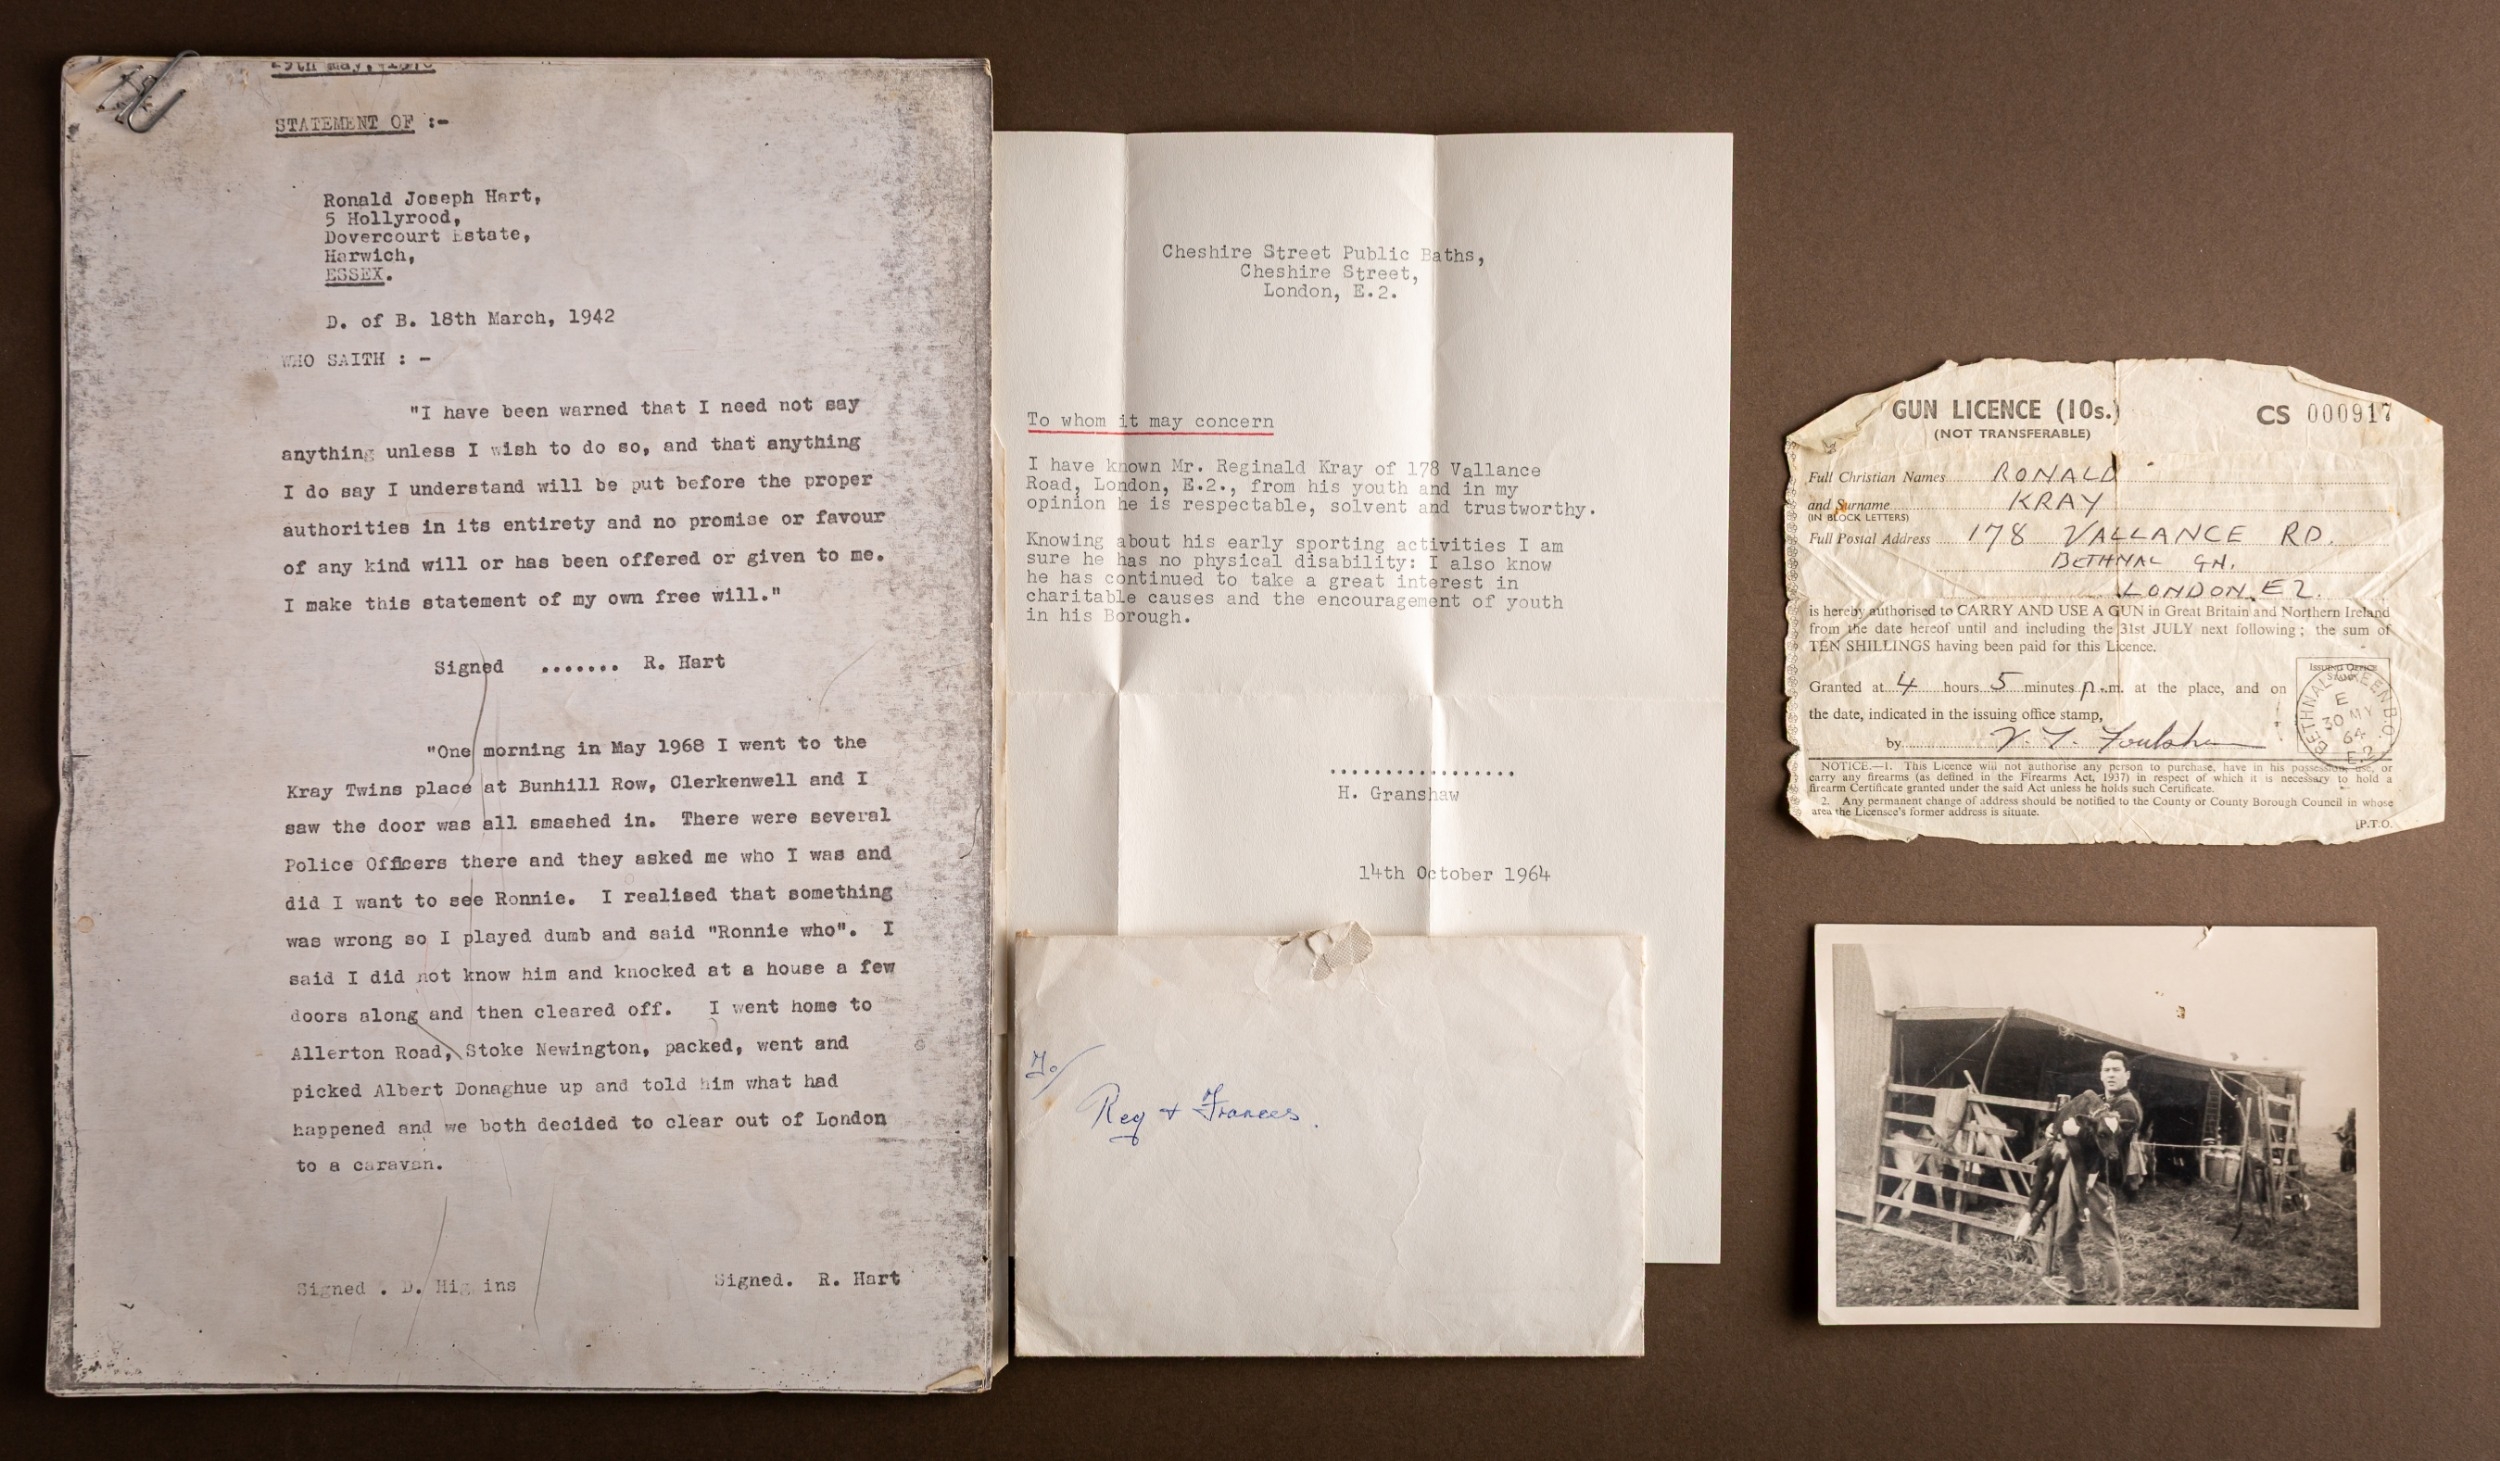 29th May,
STATEMENT OF :-
Ronald Joseph Hart,
5 Hollyrood,
Dovercourt Estate,
Harwich,
ESSEX.
D. of B. 18th March, 1942
WHO SAITH : -
"I have been warned that I need not say
anything unless I wish to do so, and that anything
I do say I understand will be put before the proper
authorities in its entirety and no promise or favour
of any kind will or has been offered or given to me.
I make this statement of my own free will."
Signed ....... R. Hart
"One morning in May 1968 I went to the
Kray Twins place at Bunhill Row, Clerkenwell and I
saw the door was all smashed in. There were several
Police Officers there and they asked me who I was and
did I want to see Ronnie. I realised that something
was wrong so I played dumb and said "Ronnie who". I
said I did not know him and knocked at a house a few
doors along and then cleared off. I went home to
Allerton Road, Stoke Newington, packed, went and
picked Albert Donaghue up and told him what had
happened and we both decided to clear out of London
to a caravan.
Signed . D. Higgins
Signed. R. Hart
Cheshire Street Public Baths,
Cheshire Street,
London, E.2.
To whom it may concern
I have known Mr. Reginald Kray of 178 Vallance
Road, London, E.2., from his youth and in my
opinion he is respectable, solvent and trustworthy.
Knowing about his early sporting activities I am
sure he has no physical disability: I also know
he has continued to take a great interest in
charitable causes and the encouragement of youth
in his Borough.
.................
H. Granshaw
14th October 1964
To/
Reg + Frances.
GUN LICENCE (10s.)
CS 000917
(NOT TRANSFERABLE)
Full Christian Names RONALD
and Surname KRAY
(IN BLOCK LETTERS)
Full Postal Address 178 VALLANCE RD.
BETHNAL GN.
LONDON E2.
is hereby authorised to CARRY AND USE A GUN in Great Britain and Northern Ireland
from the date hereof until and including the 31st JULY next following; the sum of
TEN SHILLINGS having been paid for this Licence.
Granted at 4 hours 5 minutes p.m. at the place, and on
the date, indicated in the issuing office stamp,
by
ISSUING OFFICE
STAMP
BETHNAL GREEN B.O.
E
30 MY
64
E.2
NOTICE.—1. This Licence will not authorise any person to purchase, have in his possession, use, or
carry any firearms (as defined in the Firearms Act, 1937) in respect of which it is necessary to hold a
firearm Certificate granted under the said Act unless he holds such Certificate.
2. Any permanent change of address should be notified to the County or County Borough Council in whose
area the Licensee's former address is situate.
[P.T.O.